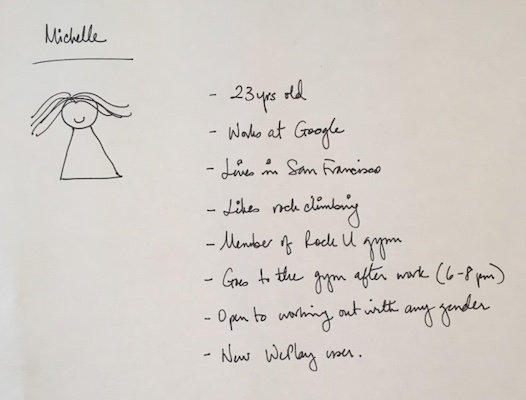 Michelle
- 23yrs old
- Works at Google
- Lives in San Francisco
- Likes rock climbing
- Member of Rock U gym
- Goes to the gym after work (6-8pm)
- Open to working out with any gender
- New WePlay user.